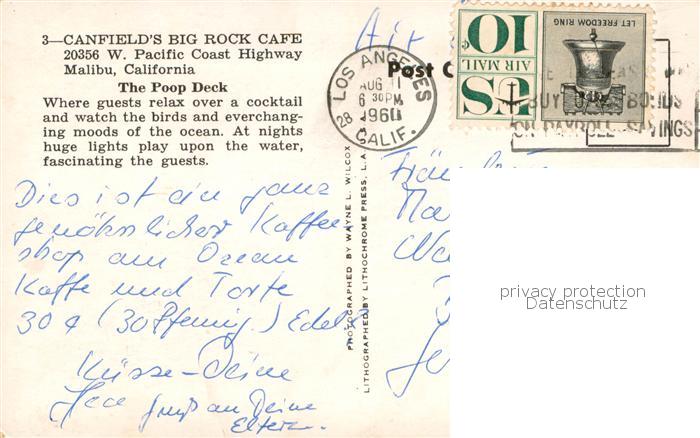 3—CANFIELD'S BIG ROCK CAFE
20356 W. Pacific Coast Highway
Malibu, California
The Poop Deck
Where guests relax over a cocktail
and watch the birds and everchang-
ing moods of the ocean. At nights
huge lights play upon the water,
fascinating the guests.
Dies ist ein ganz
gewöhnlicher Kaffee
shop am Ozean
Kaffe und Torte
30 ¢ (30 Pfennig.)
Küsse - Deine
Gruß an Deine
Eltern.
PHOTOGRAPHED BY WAYNE L. WILCOX
LITHOGRAPHED BY LITHOCHROME PRESS, L.A.
Air
Post C
LOS ANGELES
AUG 11
6 30PM
1960
28 CALIF.
US 10¢
AIR MAIL
LET FREEDOM RING
BUY BONDS
ON PAYROLL SAVINGS
privacy protection
Datenschutz